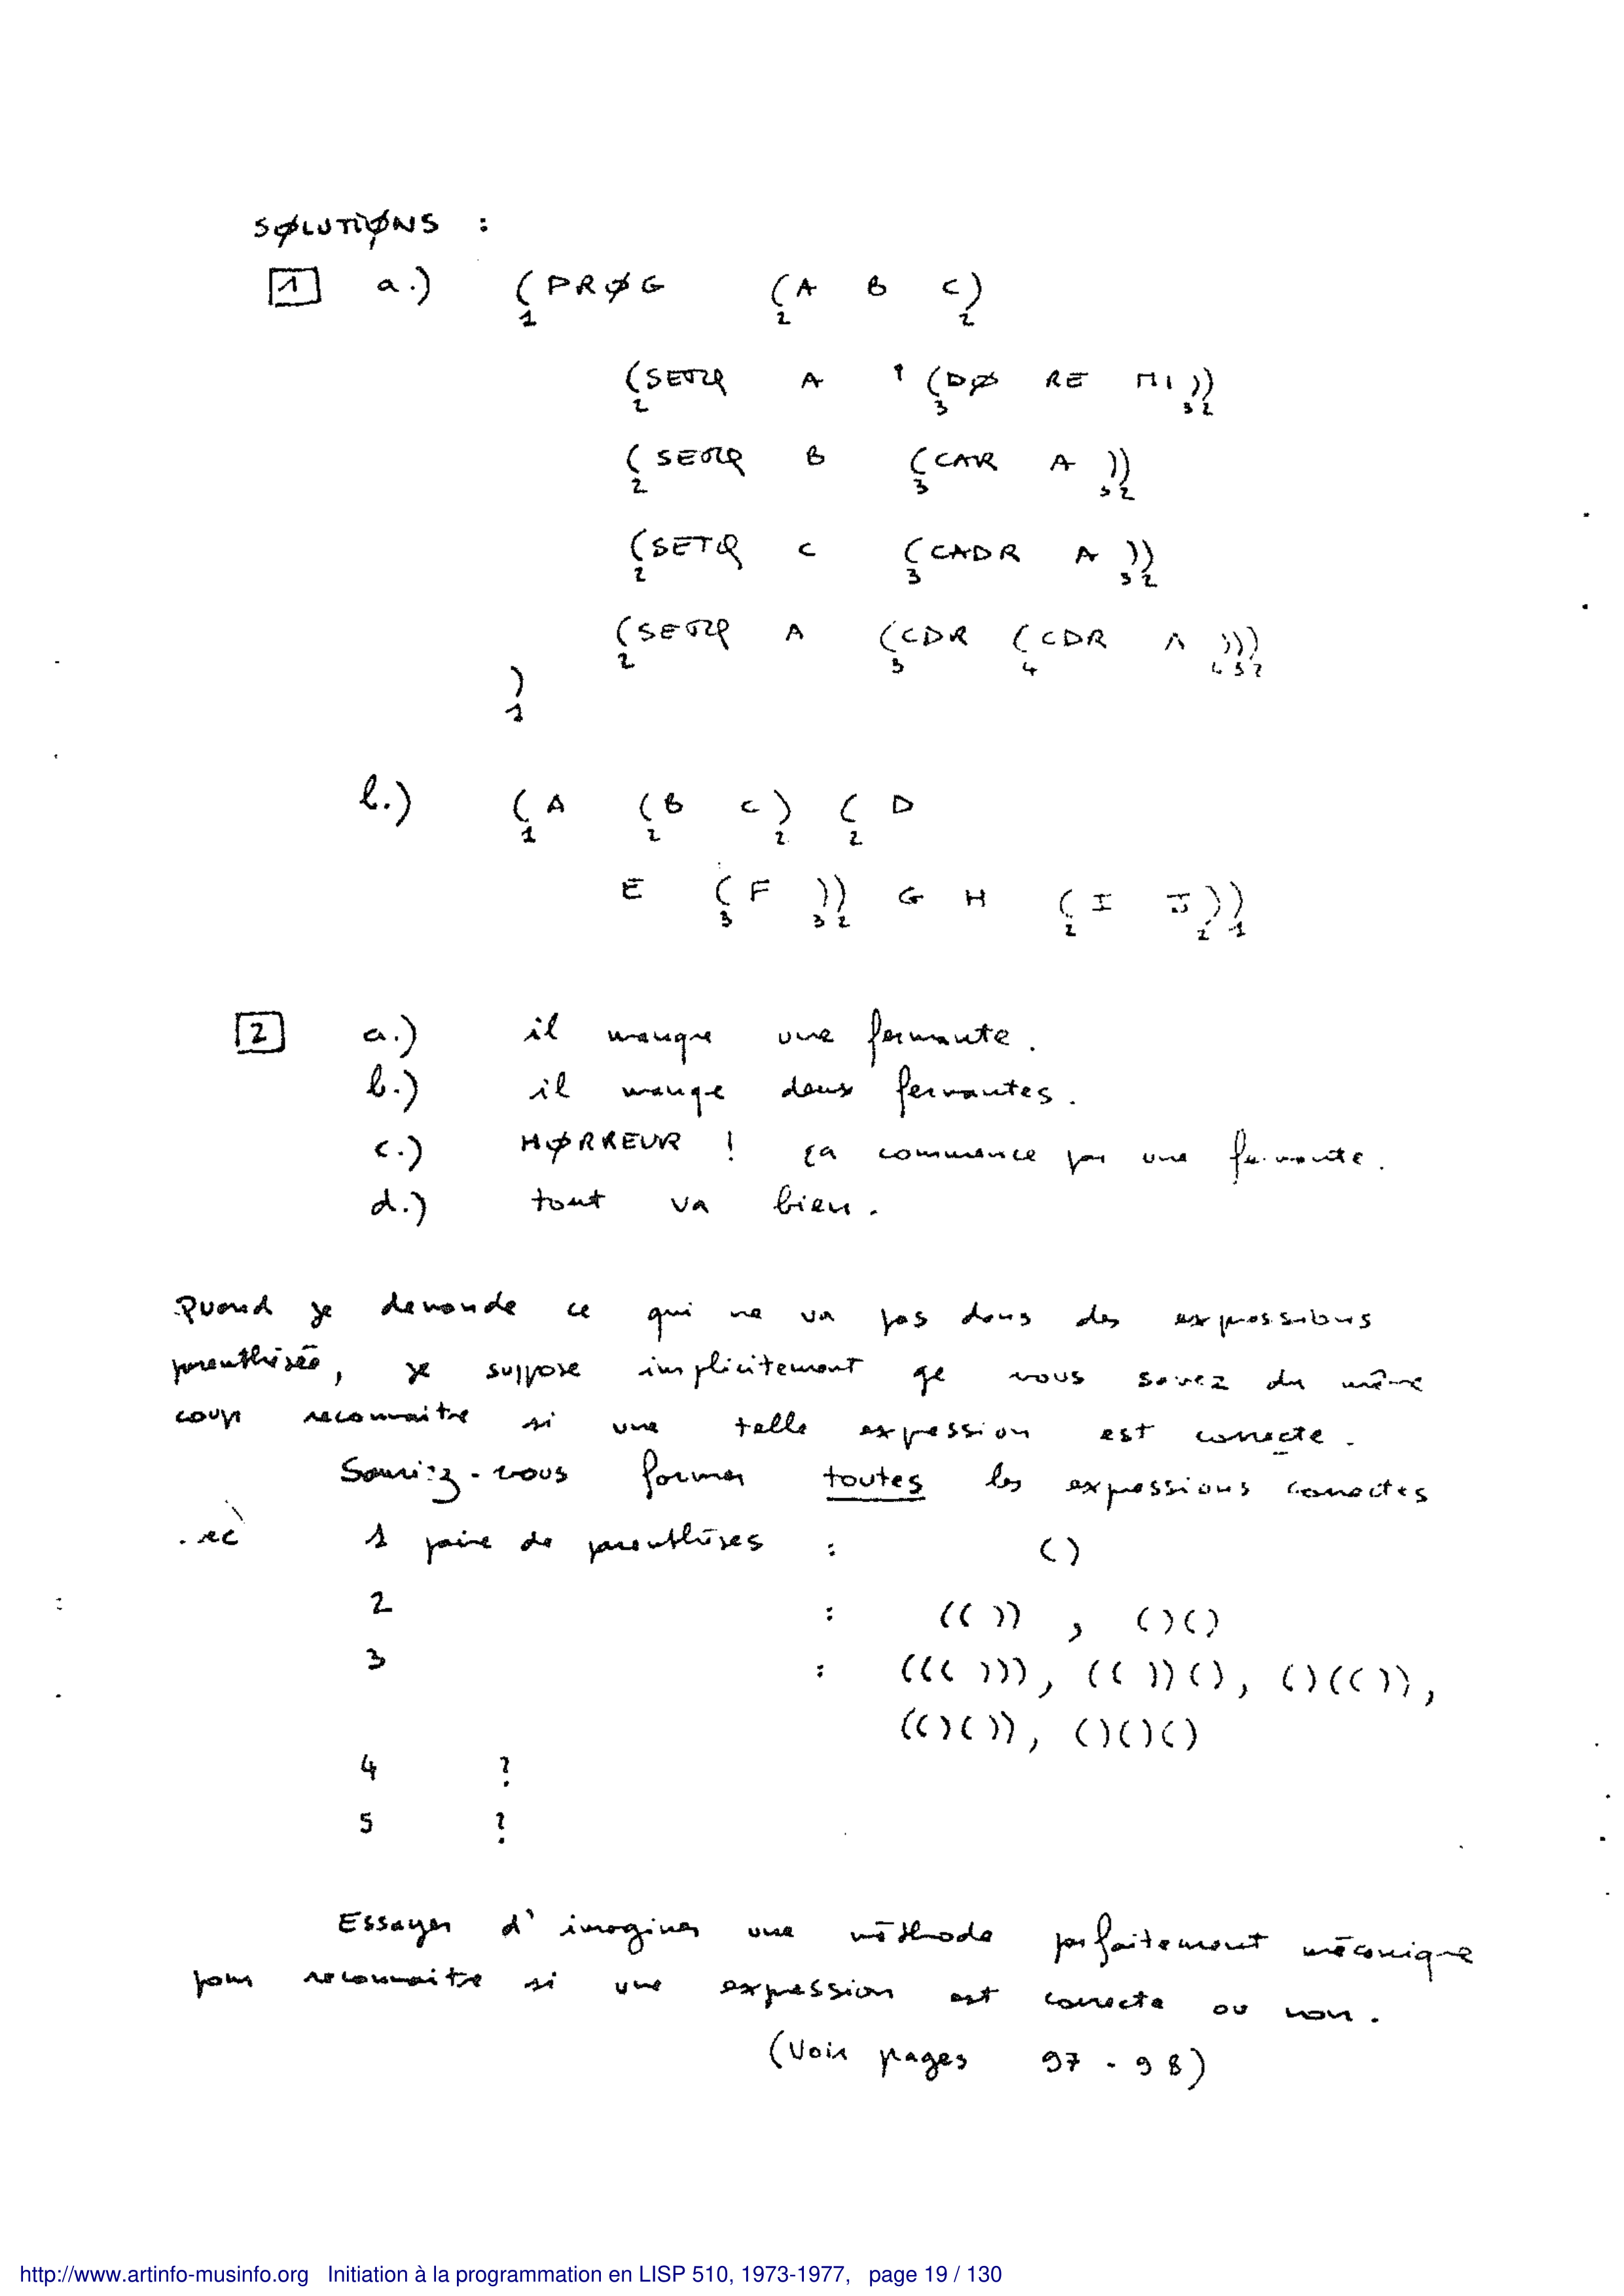 SØLUTIØNS :
1 a.) (PRØG (A B C)
1 2 2
(SETQ A '(DØ RE MI))
2 3 3 2
(SETQ B (CAR A))
2 3 3 2
(SETQ C (CADR A))
2 3 3 2
(SETQ A (CDR (CDR A)))
2 3 4 4 3 2
)
1
b.) (A (B C) (D
1 2 2 2
E (F)) G H (I J))
3 3 2 2 2 1
2 a.) il manque une fermante.
b.) il manque deux fermantes.
c.) HØRREUR ! ça commence par une fermante.
d.) tout va bien.
Quand je demande ce qui ne va pas dans des expressions
parenthésée, je suppose implicitement qe vous savez du même
coup reconnaitre si une telle expression est correcte.
Sauriez-vous former toutes les expressions correctes
.ec 1 paire de parenthèses : ()
2 : (()) , ()()
3 : ((())), (())(), ()(()),
(()()), ()()()
4 ?
5 ?
Essayer d'imaginer une méthode parfaitement mécanique
pour reconnaitre si une expression est correcte ou non.
(Voir pages 97-98)
http://www.artinfo-musinfo.org Initiation à la programmation en LISP 510, 1973-1977, page 19 / 130